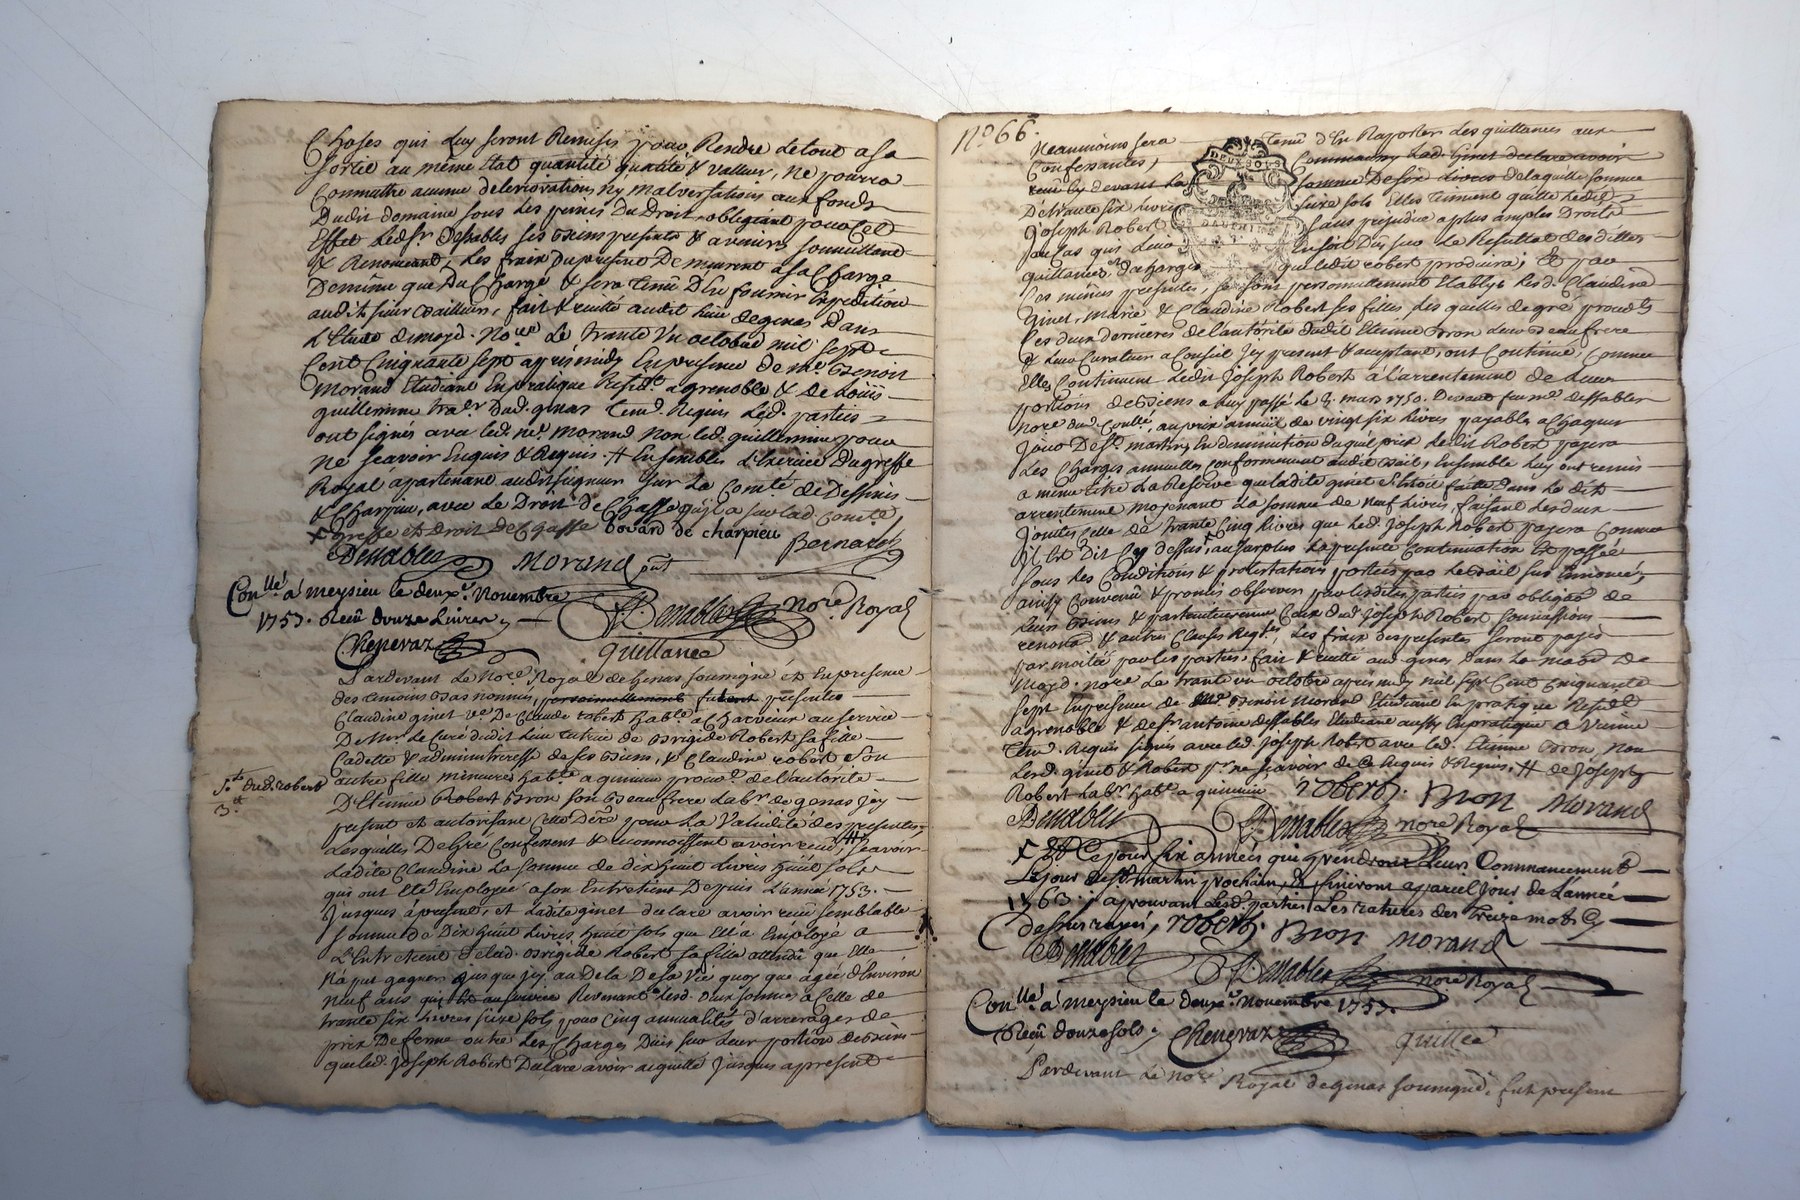 Choses qui luy seront Remises pour Rendre le tout a sa
sortie au même Etat quantité qualité & valleur, ne pourra
Connuttre aucune deteriorations ny malversations aux fonds
Dudit domaine sous les peines du Droit obligeant pour Cet
Effet Led. sr Desables ses biens presents & avenirs soumettant
& Renonceant, Les fraix du present Demeurent a la Charge
De même que Du Chargé & sera tenu D'en fournir Expedition
audit sieur bailleur, fait & recité audit lieu de genas Dans
L'Etude de moyd. Nore Le trante Un octobre mil sept
Cent Cinquante sept apres midy En presence de me Benoit
Morand Etudiant En pratique Residt a grenoble & de Louis
guillermin trar dud. genas temd. Requis Led. parties
ont signés avec led. me morand non led. guillermin pour
ne scavoir Enquis & Requis. # Ensembles L'Exercice du greffe
Royal apartenant audit seigneur sur La Comté de Dessines
& Charpieu, avec Le Droit de Chasse qu'il a sur lad. Comté
greffe et Droit de Chasse bovard de charpieu Bernard
Desables Morand
Conllé a meysieu le deuxe. Novembre
1757. Receu douze Livres Desables Nore Royal
Chenevaz
Quillance
Pardevant Le Nore Royal de genas soussigné & En presence
des temoins bas nommés, personnellement furent presentes
Claudine ginet ve De Claude robert habte a Charvieux au service
De Mr. Le Curé dudit lieu tutrice de Brigide Robert sa fille
Cadette & administreresse de ses biens, & Claudine robert son
autre fille mineure habte a
D'Etienne Robert Bron son Beaufrere Labr de genas jcy
present et autorisant Cette Dere pour La Validité des presentes,
Lesquelles De gré Confessent & reconnoissent avoir receu # scavoir
Ladite Claudine La somme de dix huit Livres huit sols
qui ont Eté Employée a son Entretient Depuis L'année 1753.
jusques a present, et Ladite ginet declare avoir receu semblable
somme de Dix huit Livres huit sols que Ell'a Employé a
L'Entretient de lad. Brigide Robert sa fille attendu que Elle
N'a put gagner jusques jcy au Dela De sa Vie quoy que agée d'Environ
neuf ans Revenant Lesd. deux sommes a Celle de
trante six Livres seize sols pour Cinq annualités d'arrerages de
prix De ferme outre Les Charges Dües sur Leur portion de biens
que led. joseph Robert Declare avoir acquitté jusques a present
dud. robert
3.
No 66.
Neaumoins sera tenu d'En Raporter Les quittances aux
Confessantes, Lad. Ginet declare avoir
receu Cy devant La somme De six Livres de laquelle somme
De trante six Livres seize sols Elles tiennent quitte Ledit
joseph Robert sans prejudice a plus amples Droits
au Cas que Leur En soit Dus sur Le Resultat desdittes
quittances de charges que ledit robert produira; Et par
Ces mêmes presentes, se sont personnellement Etablys Lesd. Claudine
Ginet, Marie & Claudine Robert ses filles, Les quelles de gré
Ces deux dernieres de l'autorité dudit Etienne Bron Leur beaufrere
& Leur Curateur a Conseil jcy present & acceptant, ont Continué, Comme
Elles Continuent Ledit Joseph Robert à l'arrentement de Leurs
portions de biens a luy passé le 8. mars 1750. Devant feu me Dessables
Nore dud. au prix annuel de vingt six Livres payable a Chaque
jour De St. martin, En diminution duquel prix Ledit Robert payera
Les Charges annuelles Conformement audit bail, Ensemble Luy ont remis
a meme titre La Reserve que ladite ginet s'Etoit faitte Dans Le dit
arrentement moyenant La somme de neuf Livres, faisant Les deux
jointes Celle de trante Cinq Livres que Led. joseph Robert payera Comme
il Est Dit Cy dessus, au surplus La presente Continuation Est passée
sous Les Conditions & protestations portées par Le bail sus Ennoncé,
ainsy Convenu & promis observer par lesdites parties par obligaon de
Leurs biens & particulierement Ceux dud. joseph Robert soumissions
renonon & autres Clauses Requises, Les fraix des presentes seront payés
par moitiés par les parties, fait & recitté aud. genas Dans La maison de
Moyd. nore Le trante un octobre apres midy mil sept Cent Cinquante
sept En presence de me. Benoit Morand Etudiant En pratique Residt
a grenoble & de sr antoine dessables Etudiant aussy En pratique a Vienne
temd. Requis signés avec led. joseph Robert avec led. Etienne Bron, non
Lesd. ginet & Robert pr ne scavoir de Ce Enquis & Requis. # de joseph
Robert Labr. habt a roberts. Bron Morand
Desables Desables nore Royal
& Ce pour six années qui prendront Leur Commancement
Le jour de St. martin prochain, & finiront a pareil jour de L'année
1763. aprouvant Lesd. parties Les ratures des treize mots Cy
dessus rayés, roberts. Bron morand
Desables Desables nore Royal
Conllé a meysieu le deuxe. novembre 1757.
Receu douze sols, Chenevaz Quittce
Pardevant Le nore Royal de genas soussigné, fut present
DEUX SOLS
DAUPHINÉ